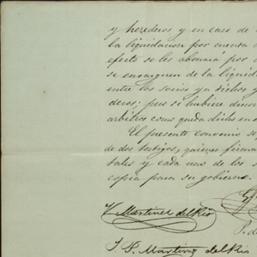 y herederos y en caso de
la liquidacion por cuenta
efecto se les abonará por
se encarguen de la liquid
entre los socios ya dichos y
deros; pero si hubiere discor
arbitros como queda dicho en
El presente convenio se
de dos testigos, quienes firma
tales y cada uno de los
copia para su gobierno.
J. Martinez del Rio
P. de
J. P. Martinez del Rio